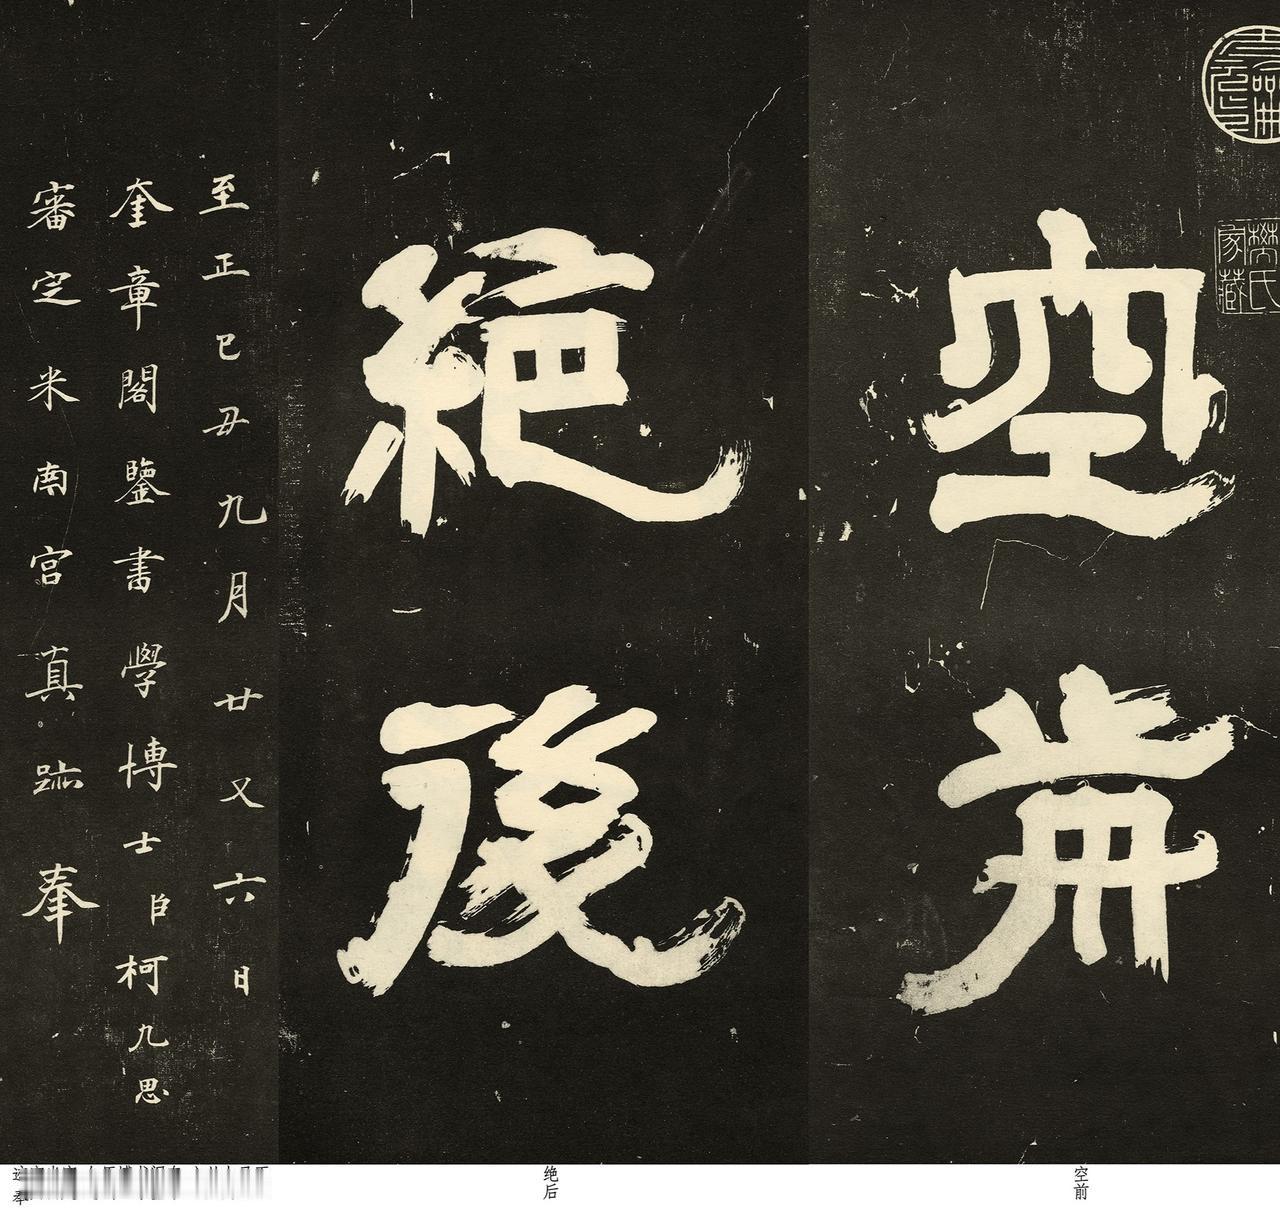 空前
絕後
至正己丑九月廿又六日
奎章閣鑒書學博士臣柯九思
審定米南宮真跡奉
樊氏家藏
空前
绝后